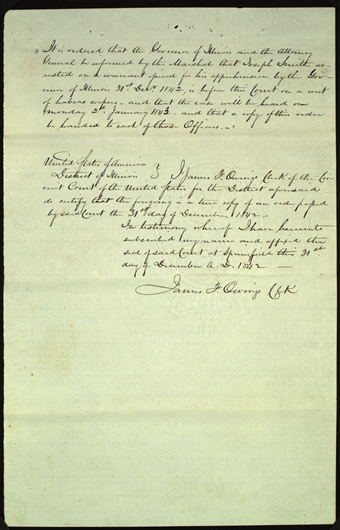 "It is ordered that the Governor of Illinois and the Attorney
General be informed by the Marshal that Joseph Smith ar-
rested on a warrant issued for his apprehension by the Gov-
ernor of Illinois 31st Decr. 1842, is before this Court on a writ
of habeas corpus – and that the case will be heard on
monday 2d January 1843 – and that a copy of this order
be handed to each of those Officers. –"
United States of America
District of Illinois } I James F. Owings Clerk of the Cir-
cuit Court of the United States for the District aforesaid
do certify that the foregoing is a true copy of an order passed
by said Court the 31st day of December 1842. –
In testimony whereof I have hereunto
subscribed my name and affixed the
seal of said Court at Springfield this 31st
day of December A. D. 1842 –
James F. Owings Clk